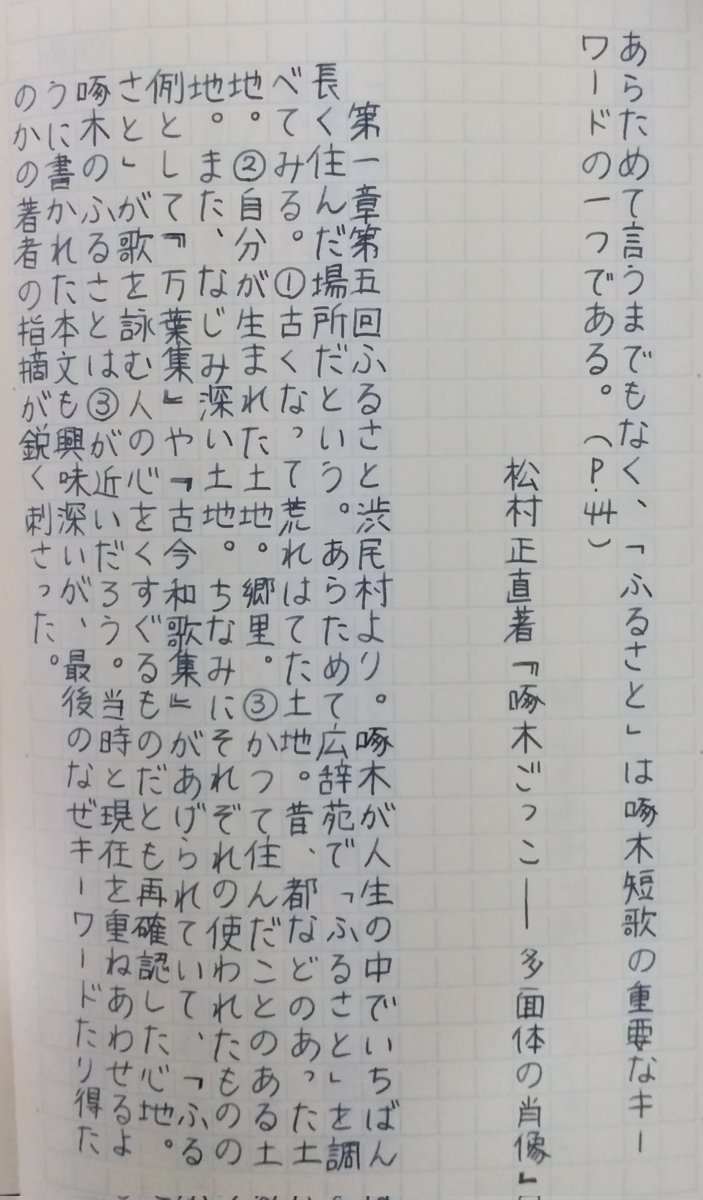 あらためて言うまでもなく、「ふるさと」は啄木短歌の重要なキー
ワードの一つである。（P.44）
松村正直著『啄木ごっこ―多面体の肖像』
第一章第五回ふるさと渋民村より。啄木が人生の中でいちばん
長く住んだ場所だという。あらためて広辞苑で「ふるさと」を調
べてみる。①古くなって荒れはてた土地。昔、都などのあった土
地。②自分が生まれた土地。郷里。③かつて住んだことのある土
地。また、なじみ深い土地。ちなみにそれぞれの使われたものの
例として『万葉集』や『古今和歌集』があげられていて、「ふる
さと」が歌を詠む人の心をくすぐるものだとも再確認した心地。
啄木のふるさとは③が近いだろう。当時と現在を重ねあわせるよ
うに書かれた本文も興味深いが、最後のなぜキーワードたり得た
のかの著者の指摘が鋭く刺さった。